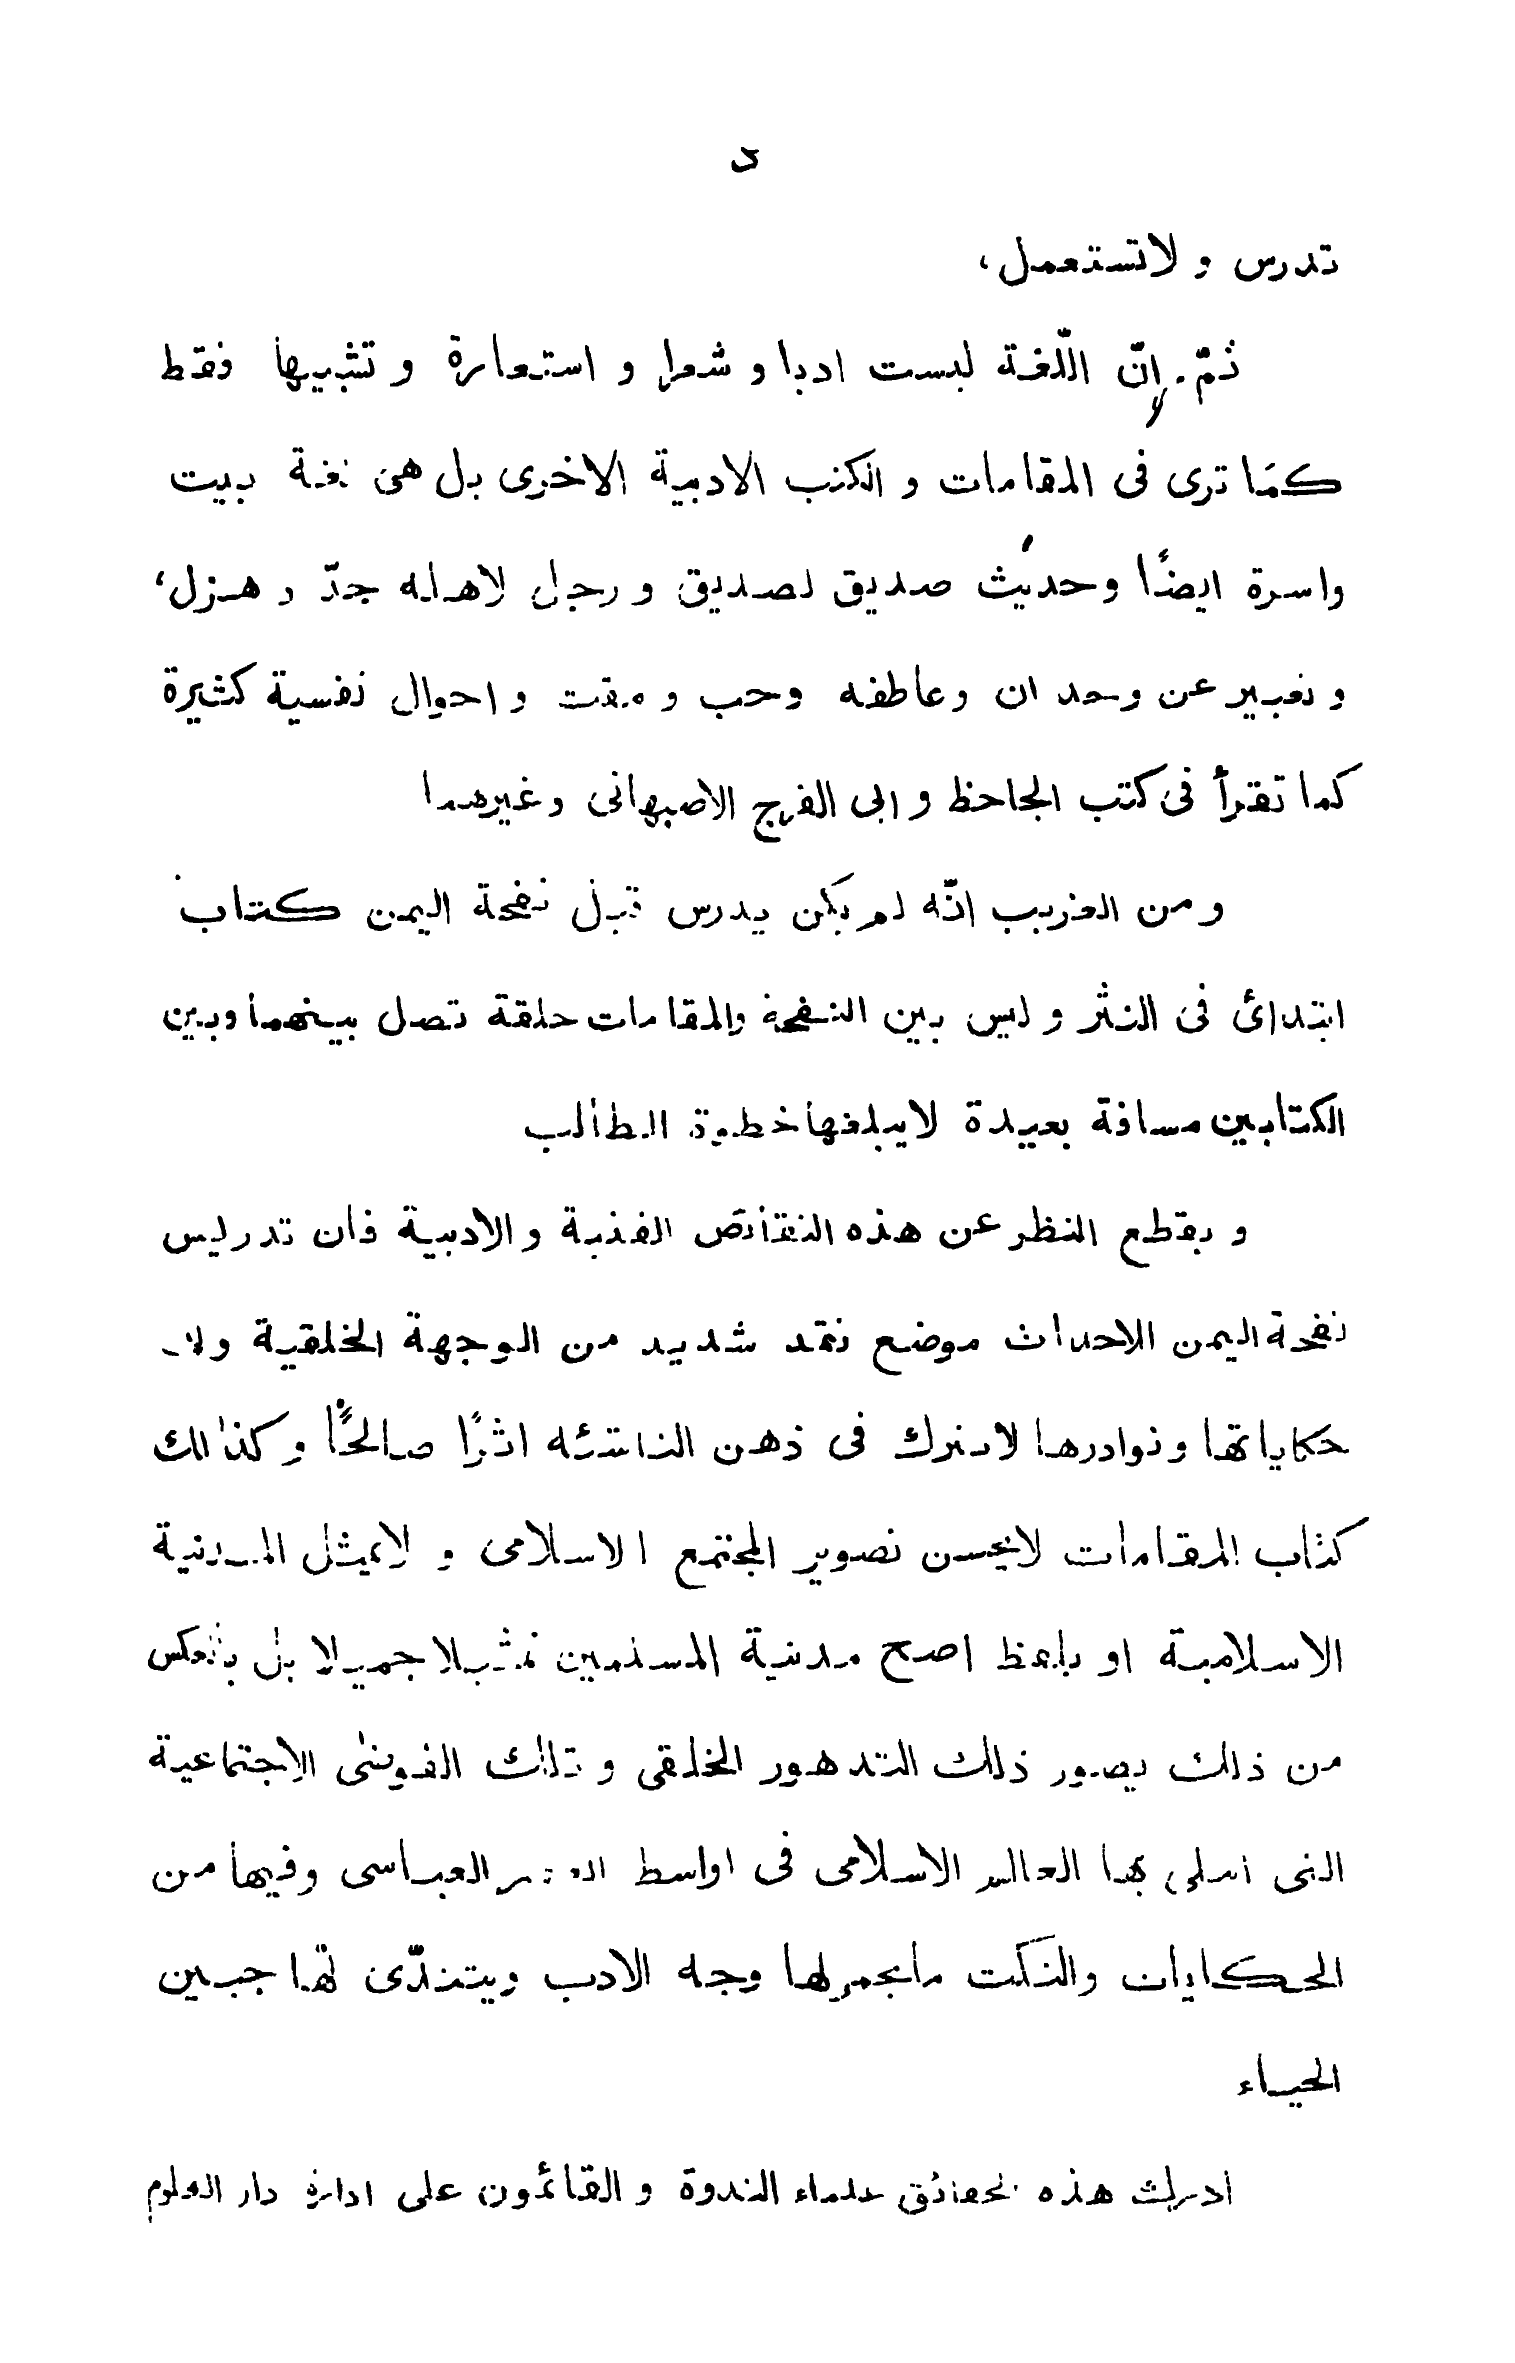 د
تدرس و لاتستعمل،
ثمّ إنّ اللّغة ليست ادبا و شعرا و استعارة و تشبيها فقط
كما ترى فى المقامات و الكتب الادبية الاخرى بل هى لغة بيت
واسرة ايضًا وحديث صديق لصديق و رجل لاهله جدّ و هزل،
و تعبير عن وجدان وعاطفه وحب و مقت و احوال نفسية كثيرة
كما تقرأ فى كتب الجاحظ و ابى الفرج الاصبهانى وغيرهما
و من الغريب انّه لم يكن يدرس قبل نفحة اليمن كتاب
ابتدائ فى النثر و ليس بين النفحة والمقامات حلقة تصل بينهما وبين
الكتابين مسافة بعيدة لايبلغها خطوة الطالب
و بقطع النظر عن هذه النقائص الفنية و الادبية فان تدريس
نفحة اليمن للاحداث موضع نقد شديد من الوجهة الخلقية ولا۔
حكاياتها ونوادرها لاتترك فى ذهن الناشئه اثرًا صالحًا وكذالك
كتاب المقامات لايحسن تصوير المجتمع الاسلامى و لايمثل المدنية
الاسلامية او بلفظ اصح مدنية المسلمين تمثيلا جميلا بل بالعكس
من ذلك يصور ذلك التدهور الخلقى و تلك الفوضى الاجتماعية
التى ابتلى بها العالم الاسلامى فى اواسط العصر العباسى وفيها من
الحكايات والنكت مايحمر لها وجه الادب ويتندّى لها جبين
الحياء
ادرك هذه الحقائق علماء الندوة و القائمون على ادارة دار العلوم